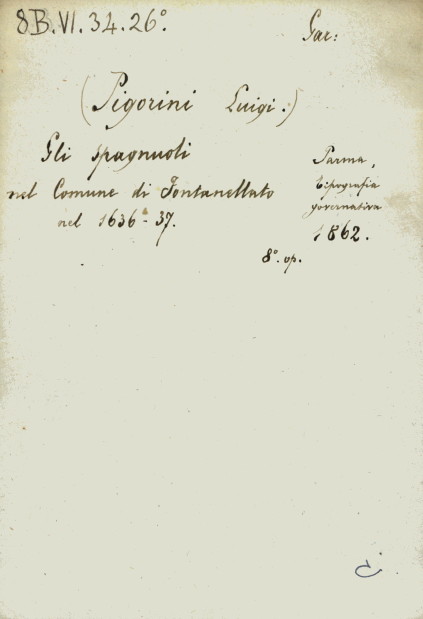 8B.VI.34.26°.
Gar:
(Pigorini Luigi.)
Gli spagnuoli
nel Comune di Fontanellato
nel 1636-37.
Parma,
tipografia
governativa
1862.
8°. op.